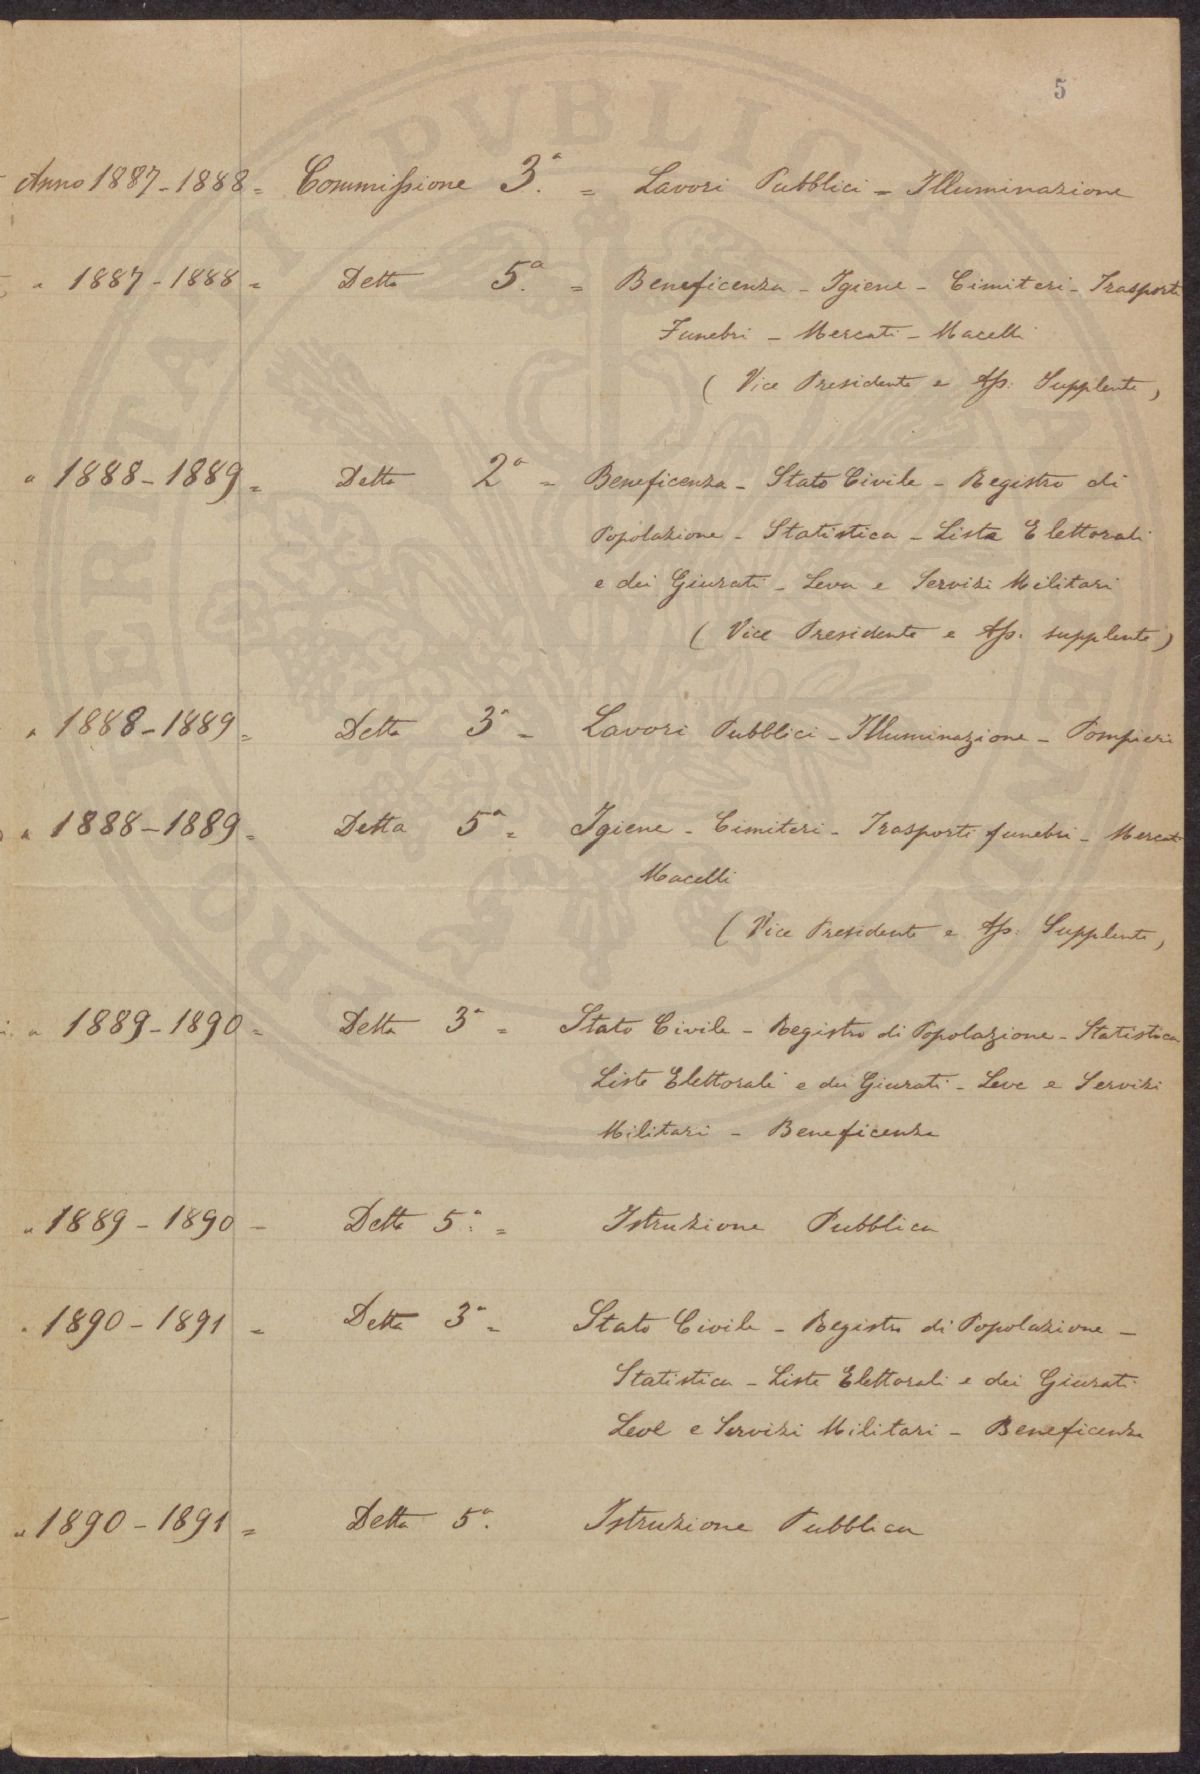 5
Anno 1887-1888 = Commissione 3.ª = Lavori Pubblici - Illuminazione
" 1887-1888 = Detta 5.ª = Beneficenza - Igiene - Cimiteri - Trasporti
Funebri - Mercati - Macelli
( Vice Presidente e Ass: Supplente )
" 1888-1889 = Detta 2ª = Beneficenza - Stato Civile - Registro di
Popolazione - Statistica - Liste Elettorali
e dei Giurati - Leva e Servizi Militari
( Vice Presidente e Ass. supplente )
" 1888-1889 = Detta 3ª = Lavori Pubblici - Illuminazione - Pompieri
" 1888-1889 = Detta 5ª = Igiene - Cimiteri - Trasporti funebri - Mercati
Macelli
( Vice Presidente e Ass: Supplente )
" 1889-1890 = Detta 3ª = Stato Civile - Registro di Popolazione - Statistica
Liste Elettorali e dei Giurati - Leve e Servizi
Militari - Beneficenza
" 1889-1890 - Detta 5.ª = Istruzione Pubblica
" 1890-1891 = Detta 3ª = Stato Civile - Registro di Popolazione -
Statistica - Liste Elettorali e dei Giurati
Leve e Servizi Militari - Beneficenza
" 1890-1891 = Detta 5ª. Istruzione Pubblica